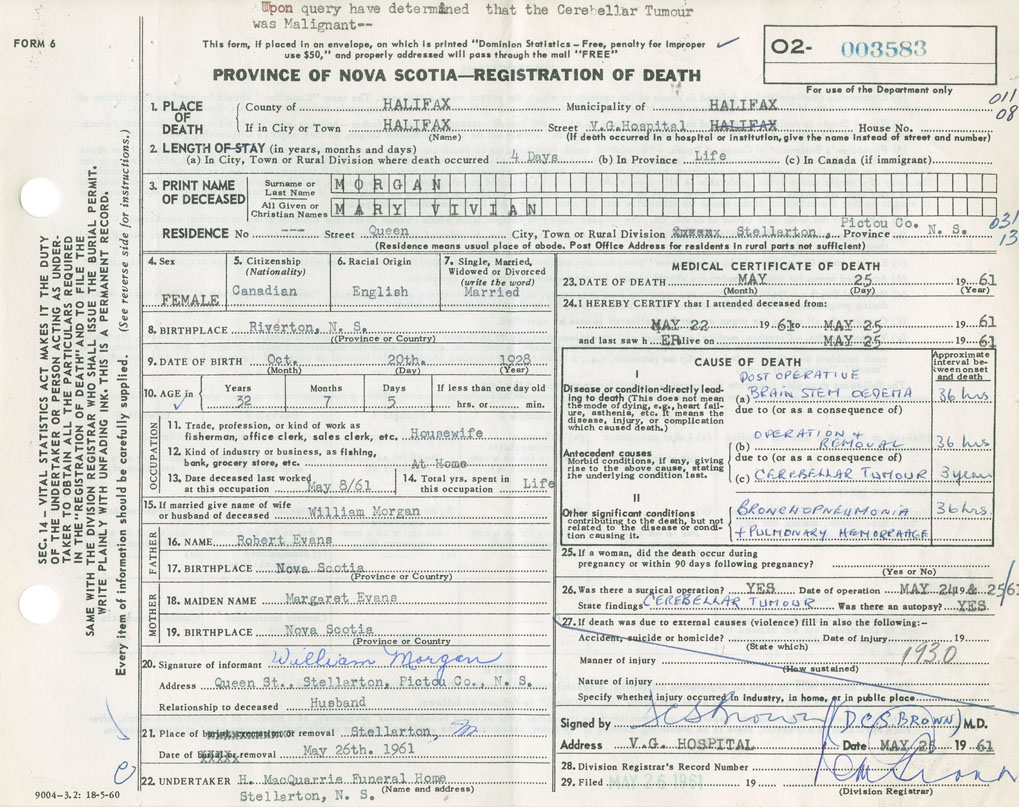 Upon query have determined that the Cerebellar Tumour
was Malignant--
FORM 6
This form, if placed in an envelope, on which is printed "Dominion Statistics – Free, penalty for improper
use $50," and properly addressed will pass through the mail "FREE"
O2- 003583
PROVINCE OF NOVA SCOTIA—REGISTRATION OF DEATH
For use of the Department only
011
08
1. PLACE OF DEATH
County of HALIFAX Municipality of HALIFAX
If in City or Town HALIFAX Street V.G.Hospital HALIFAX House No.
(Name) (If death occurred in a hospital or institution, give the name instead of street and number)
2. LENGTH OF STAY (in years, months and days)
(a) In City, Town or Rural Division where death occurred 4 Days (b) In Province Life (c) In Canada (if immigrant)
3. PRINT NAME OF DECEASED
Surname or Last Name MORGAN
All Given or Christian Names MARY VIVIAN
031
13
RESIDENCE No --- Street Queen City, Town or Rural Division Stellarton, Province Pictou Co. N. S.
(Residence means usual place of abode. Post Office Address for residents in rural parts not sufficient)
4. Sex
FEMALE
5. Citizenship
(Nationality)
Canadian
6. Racial Origin
English
7. Single, Married,
Widowed or Divorced
(write the word)
Married
8. BIRTHPLACE Riverton, N. S.
(Province or Country)
9. DATE OF BIRTH Oct. 20th. 1928
(Month) (Day) (Year)
10. AGE in Years Months Days If less than one day old
32 7 5 hrs. or min.
OCCUPATION
11. Trade, profession, or kind of work as
fisherman, office clerk, sales clerk, etc. Housewife
12. Kind of industry or business, as fishing,
bank, grocery store, etc. At Home
13. Date deceased last worked
at this occupation May 8/61
14. Total yrs. spent in
this occupation Life
15. If married give name of wife
or husband of deceased William Morgan
FATHER
16. NAME Robert Evans
17. BIRTHPLACE Nova Scotia
(Province or Country)
MOTHER
18. MAIDEN NAME Margaret Evans
19. BIRTHPLACE Nova Scotia
(Province or Country
20. Signature of informant William Morgan
Address Queen St., Stellarton, Pictou Co., N. S.
Relationship to deceased Husband
21. Place of burial, cremation or removal Stellarton,
Date of burial or removal May 26th. 1961
22. UNDERTAKER H. MacQuarrie Funeral Home
(Name and address)
Stellarton, N. S.
MEDICAL CERTIFICATE OF DEATH
23. DATE OF DEATH MAY 25 1961
(Month) (Day) (Year)
24. I HEREBY CERTIFY that I attended deceased from:
MAY 22 1961 to MAY 25 1961
and last saw hER alive on MAY 25 1961
CAUSE OF DEATH
Approximate interval between onset and death
I
Disease or condition directly leading to death (This does not mean the mode of dying, e.g., heart failure, asthenia, etc. It means the disease, injury, or complication which caused death.)
(a) POST OPERATIVE
BRAIN STEM OEDEMA 36 hrs
due to (or as a consequence of)
Antecedent causes
Morbid conditions, if any, giving rise to the above cause, stating the underlying condition last.
(b) OPERATION &
REMOVAL 36 hrs
due to (or as a consequence of)
(c) CEREBELLAR TUMOUR 3 years
II
Other significant conditions
contributing to the death, but not related to the disease or condition causing it.
BRONCHOPNEUMONIA 36 hrs.
+ PULMONARY HEMORRHAGE
25. If a woman, did the death occur during
pregnancy or within 90 days following pregnancy?
(Yes or No)
26. Was there a surgical operation? YES Date of operation MAY 24 & 25/61
State findings CEREBELLAR TUMOUR Was there an autopsy? YES
27. If death was due to external causes (violence) fill in also the following:-
Accident, suicide or homicide? Date of injury 19
(State which)
1930
Manner of injury
(How sustained)
Nature of injury
Specify whether injury occurred in industry, in home, or in public place
Signed by D C S Brown (D.C.S. BROWN) M.D.
Address V.G. HOSPITAL Date MAY 25 1961
28. Division Registrar's Record Number
29. Filed MAY 26 1961
(Division Registrar)
SEC. 14 – VITAL STATISTICS ACT MAKES IT THE DUTY
OF THE UNDERTAKER OR PERSON ACTING AS UNDER-
TAKER TO OBTAIN ALL THE PARTICULARS REQUIRED
IN THE "REGISTRATION OF DEATH" AND TO FILE THE
SAME WITH THE DIVISION REGISTRAR WHO SHALL ISSUE THE BURIAL PERMIT.
WRITE PLAINLY WITH UNFADING INK. THIS IS A PERMANENT RECORD.
Every item of information should be carefully supplied. (See reverse side for instructions.)
9004-3.2: 18-5-60